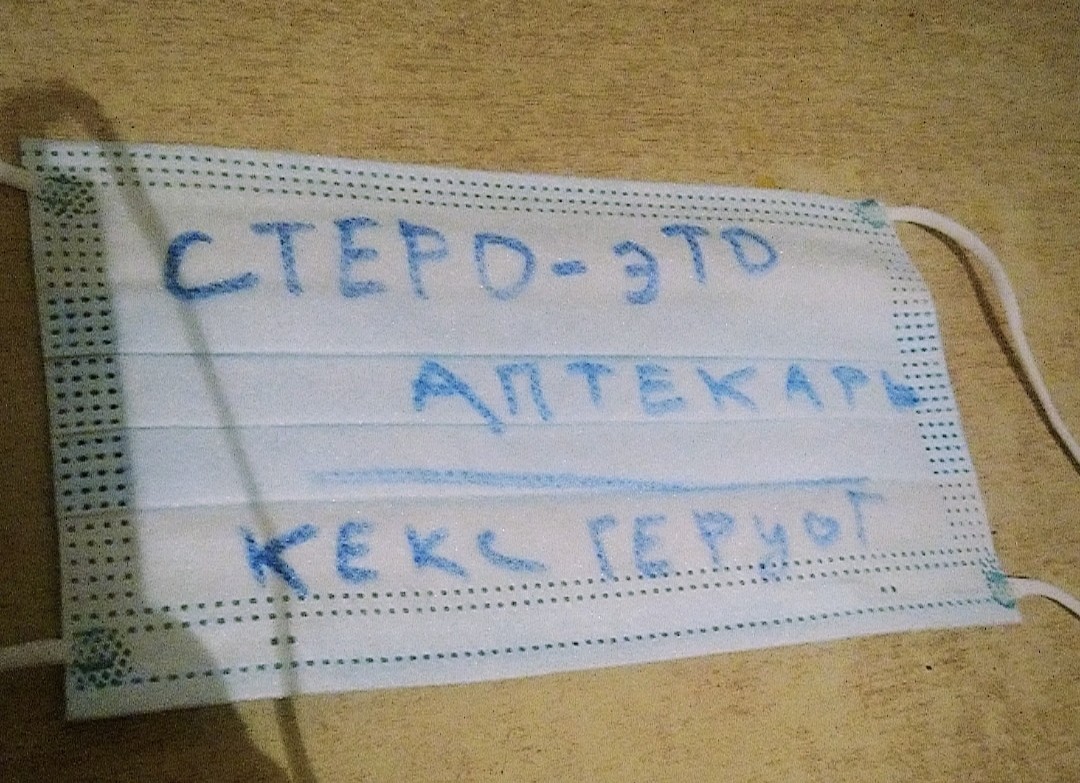 СТЕРО-ЭТО
АПТЕКАРЬ
КЕКС ГЕРУОТ